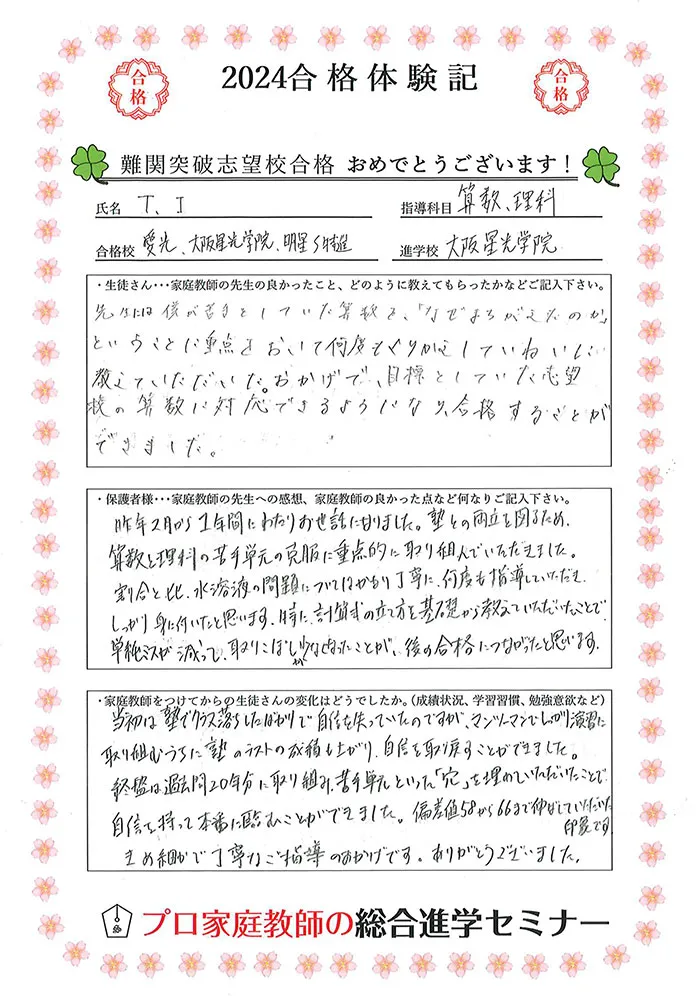 2024合格体験記
合格
合格
難関突破志望校合格 おめでとうございます！
氏名 T、I
指導科目 算数、理科
合格校 愛光、大阪星光学院、明星S特進
進学校 大阪星光学院
・生徒さん・・・家庭教師の先生の良かったこと、どのように教えてもらったかなどご記入下さい。
先生には僕が苦手としていた算数を、「なぜまちがえたのか」
ということに重点をおいて何度もくりかえしていねいに
教えていただいた。おかげで、目標としていた志望
校の算数に対応できるようになり、合格することが
できました。
・保護者様・・・家庭教師の先生への感想、家庭教師の良かった点など何なりご記入下さい。
昨年2月から1年間にわたりお世話になりました。塾との両立を図るため、
算数と理科の苦手単元の克服に重点的に取り組んでいただきました。
割合と比、水溶液の問題については 丁寧に、何度も指導していただき、
しっかり身に付いたと思います。特に、計算式の立て方を基礎から教えていただいたことで、
単純ミスが減って、取りこぼしが少なくなったことが、後の合格につながったと思います。
・家庭教師をつけてからの生徒さんの変化はどうでしたか。（成績状況、学習習慣、勉強意欲など）
当初は塾でクラス落ちしたばかりで自信を失っていたのですが、マンツーマンでしっかり演習に
取り組むうちに塾のテストの成績も上がり、自信を取り戻すことができました。
終盤は過去問20年分に取り組み、苦手単元といった「穴」を埋めていただいたことで、
自信を持って本番に臨むことができました。偏差値58から66まで伸ばしていただいた
印象です。
きめ細かで丁寧なご指導のおかげです。ありがとうございました。
プロ家庭教師の総合進学セミナー